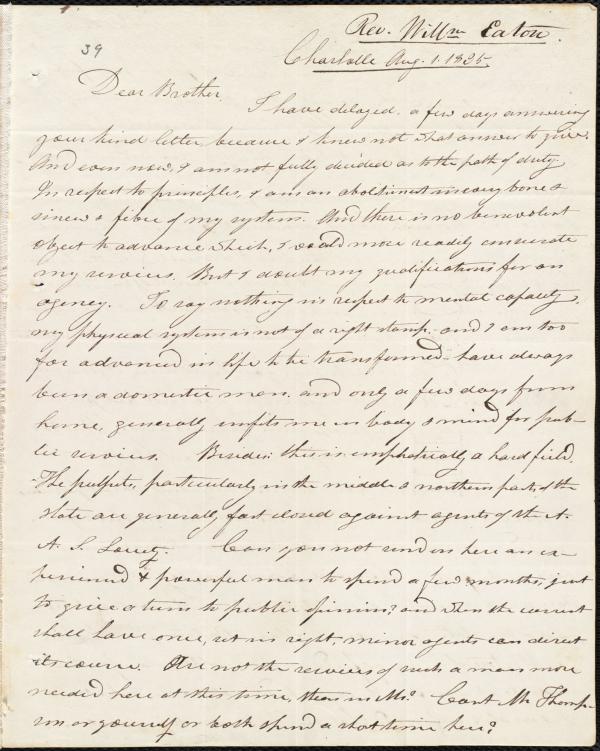 Rev. Willm Eaton.
39
Charlotte Aug. 1. 1835.
Dear Brother
I have delayed a few days answering
your kind letter, because I knew not what answer to give.
And even now, I am not fully decided as to the path of duty.
In respect to principles, I am an abolitionist in every bone &
sinew & fibre of my system. And there is no benevolent
object to advance which, I would more readily consecrate
my services. But I doubt my qualifications for an
agency. To say nothing in respect to mental capacity,
my physical system is not of a right stamp - and I am too
far advanced in life to be transformed - have always
been a domestic man. and only a few days from
home, generally unfits me in body & mind for pub-
lic services. Besides: this is emphatically a hard field.
The pulpits, particularly in the middle & northern parts of the
state are generally fast closed against agents of the A.
A. S. Society. Can you not send on here an ex-
perienced & powerful man to spend a few months, just
to give a turn to public opinion? and when the current
shall have once, set in right, minor agents can direct
its course. Are not the services of such a man more
needed here at this time, than in Ms? Cant Mr Thomp-
son or yourself or both spend a short time here?